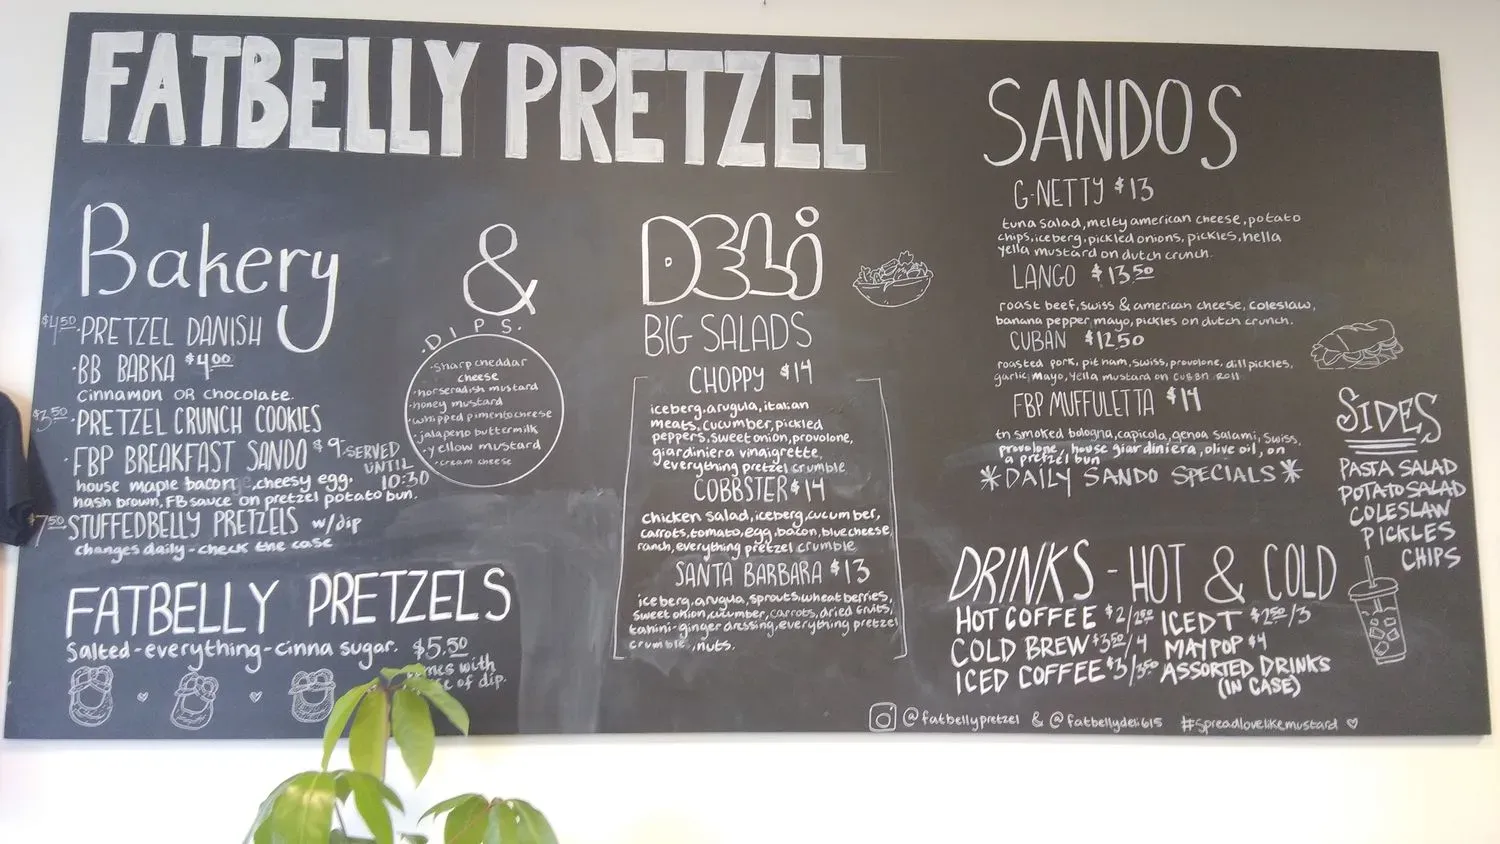 FATBELLY PRETZEL
Bakery
&
DELi
$4.50 ·PRETZEL DANISH
·BB BABKA $4.00
cinnamon OR chocolate.
$3.50 ·PRETZEL CRUNCH COOKIES
·FBP BREAKFAST SANDO $9 -SERVED
UNTIL
10:30
house maple bacon, cheesy egg,
hash brown, FB sauce on pretzel potato bun.
$7.50 STUFFEDBELLY PRETZELS w/dip
changes daily - check the case
·DIPS·
·sharp cheddar
cheese
·horseradish mustard
·honey mustard
·whipped pimento cheese
·jalapeno buttermilk
·yellow mustard
·cream cheese
FATBELLY PRETZELS
Salted-everything-cinna sugar. $5.50
with
of dip.
BIG SALADS
CHOPPY $14
iceberg, arugula, italian
meats, cucumber, pickled
peppers, sweet onion, provolone,
giardiniera vinaigrette,
everything pretzel crumble
COBBSTER $14
chicken salad, iceberg, cucumber,
carrots, tomato, egg, bacon, blue cheese,
ranch, everything pretzel crumble
SANTA BARBARA $13
iceberg, arugula, sprouts, wheatberries,
sweet onion, cucumber, carrots, dried fruits,
tahini-ginger dressing, everything pretzel
crumble, nuts.
SANDOS
G-NETTY $13
tuna salad, melty american cheese, potato
chips, iceberg, pickled onions, pickles, hella
yella mustard on dutch crunch.
LANGO $13.50
roast beef, swiss & american cheese, coleslaw,
banana pepper mayo, pickles on dutch crunch.
CUBAN $12.50
roasted pork, pit ham, swiss, provolone, dill pickles,
garlic mayo, yella mustard on cuban roll
FBP MUFFULETTA $14
tn smoked bologna, capicola, genoa salami, swiss,
provolone, house giardiniera, olive oil, on
a pretzel bun
*DAILY SANDO SPECIALS*
SIDES
PASTA SALAD
POTATO SALAD
COLESLAW
PICKLES
CHIPS
DRINKS - HOT & COLD
HOT COFFEE $2/2.50
COLD BREW $3.50/4
ICED COFFEE $3/3.50
ICED T $2.50/3
MAYPOP $4
ASSORTED DRINKS
(IN CASE)
@fatbellypretzel & @fatbellydeli615 #spreadlovelikemustard ♡